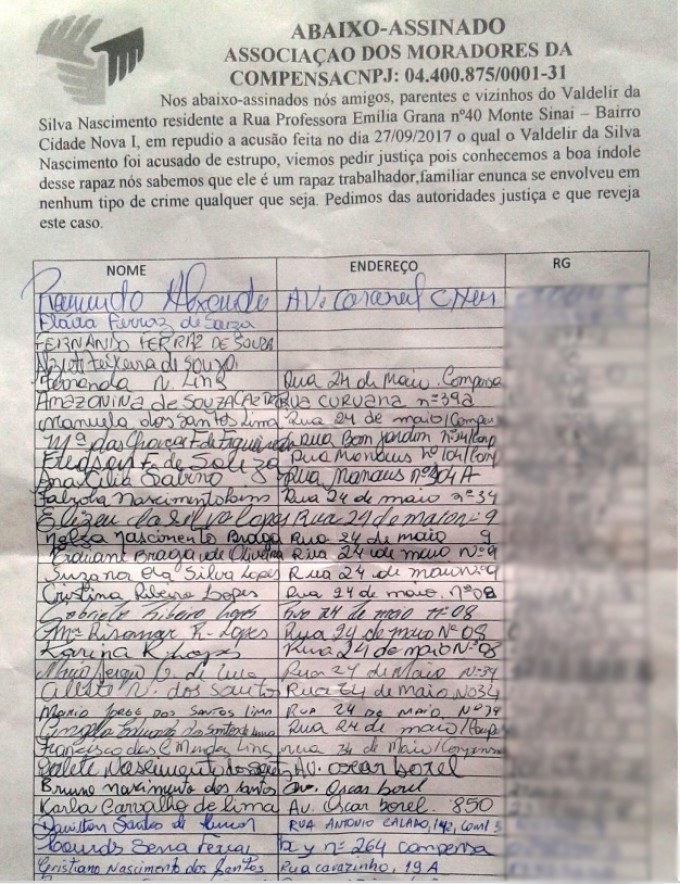 ABAIXO-ASSINADO
ASSOCIAÇAO DOS MORADORES DA
COMPENSACNPJ: 04.400.875/0001-31
Nos abaixo-assinados nós amigos, parentes e vizinhos do Valdelir da
Silva Nascimento residente a Rua Professora Emília Grana nº40 Monte Sinai – Bairro
Cidade Nova I, em repudio a acusão feita no dia 27/09/2017 o qual o Valdelir da Silva
Nascimento foi acusado de estrupo, viemos pedir justiça pois conhecemos a boa índole
desse rapaz nós sabemos que ele é um rapaz trabalhador,familiar enunca se envolveu em
nenhum tipo de crime qualquer que seja. Pedimos das autoridades justiça e que reveja
este caso.
NOME ENDEREÇO RG
Raimundo Av.
Ferraz de Souza
FERNANDO FERRAZ DE SOUZA
Teixeira de Souza
Fernanda N. Lima Rua 24 de Maio. Compensa
AMAZONINA de SOUZA RUA CURUANA nº 392
manuela dos Santos Lima Rua 24 de maio/Compen
Mª das Graças F. de Figueiredo Rua Bom Jardim
Fredson F. de Souza Rua Manaus nº 104/Comp
Ana Célia Sabino Rua Manaus nº 304 A
Nascimento Rua 24 de maio nº 34
Elizeu da Silva Lopes Rua 24 de maio nº 9
Nelza Nascimento Braga Rua 24 de maio 9
Braga de Oliveira Rua 24 de maio Nº 9
Suzana da Silva Lopes Rua 24 de maio nº 9
Cristina Ribeiro Lopes Rua 24 de maio, nº 08
Gabriele Ribeiro Lopes Rua 24 de maio nº 08
Mª Risomar R. Lopes Rua 24 de maio Nº 08
Karina R Lopes Rua 24 de maio Nº 08
de Lima Rua 24 de Maio Nº 34
Celeste N. dos Santos Rua 24 de Maio, Nº 34
Mario Jorge dos Santos Lima RUA 24 DE MAIO, Nº 34
Rua 24 de maio/Comp
Francisco das C Mendes Lima rua 24 de Maio/Compensa
Nascimento dos Santos Av. oscar borel
Bruno nascimento dos santos Av. Oscar borel
Karla Carvalho de lima Av. Oscar borel. 850
Santos de RUA ANTONIO CALADO, 142,
Lourdes Sena Ferraz nº 264 compensa
Cristiano Nascimento dos Santos Rua cavazinho, 19 A